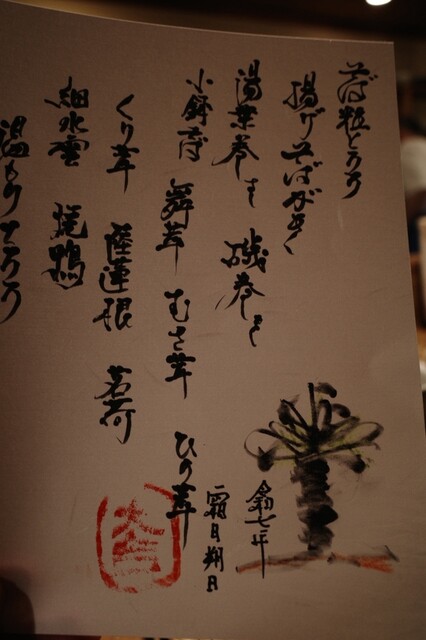 そば粒とろろ
揚げそばがき
湯葉巻き 磯巻き
小餅蕎 舞茸 むさ茸 ひら茸
くり茸 蓮根 茗荷
細水雲 焼鴨
温もりとろろ
令七年
霜月朔日